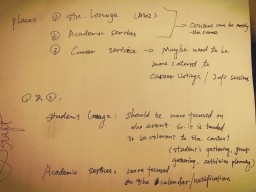 Places ① Stu. Lounge
② Academic Services
③ Career service → Maybe need to be
more catered to
Career listings / Info sessions
Content can be mostly
the same
① & ②:
Student Lounge: Should be more focused on
the event. So it is tended
to be relevant to the content
(student's gathering, group
gathering, activities planning)
Academic services: more focused
on the calendar/notifications.